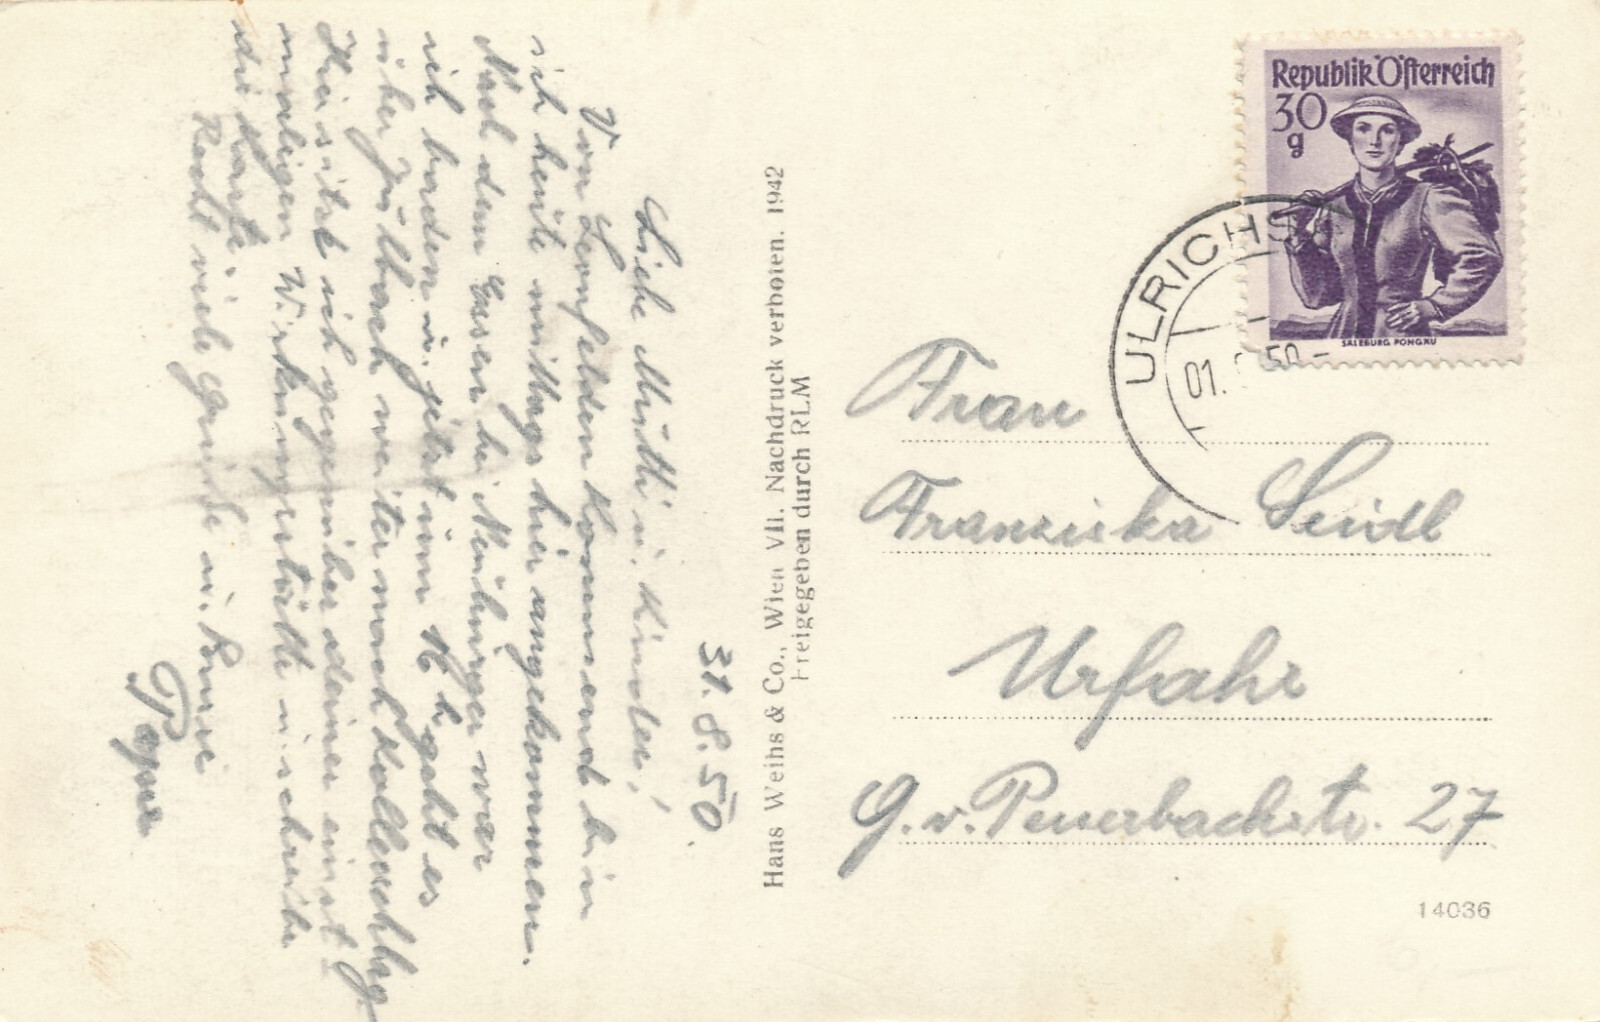 31.8.50.
Liebe Mutti u. Kinder!
Von Leonfelden kommend bin
ich heute mittags hier angekommen.
Nach dem Essen bei Neuburger war
ich baden u. jetzt um 16 h geht es
über Julbach weiter nach Kollerschlag
Hier sitze ich gegenüber deiner einst
maligen Wirkungsstätte u. schreibe
die Karte.
Recht viele Grüße u. Bussi
Papa
Hans Weihs & Co., Wien VII. Nachdruck verboten. 1942
Freigegeben durch RLM
Republik Österreich
30
g
SALZBURG PONGAU
ULRICHS
01. 50
Frau
Franziska Seidl
Urfahr
G. v. Peuerbachstr. 27
14036